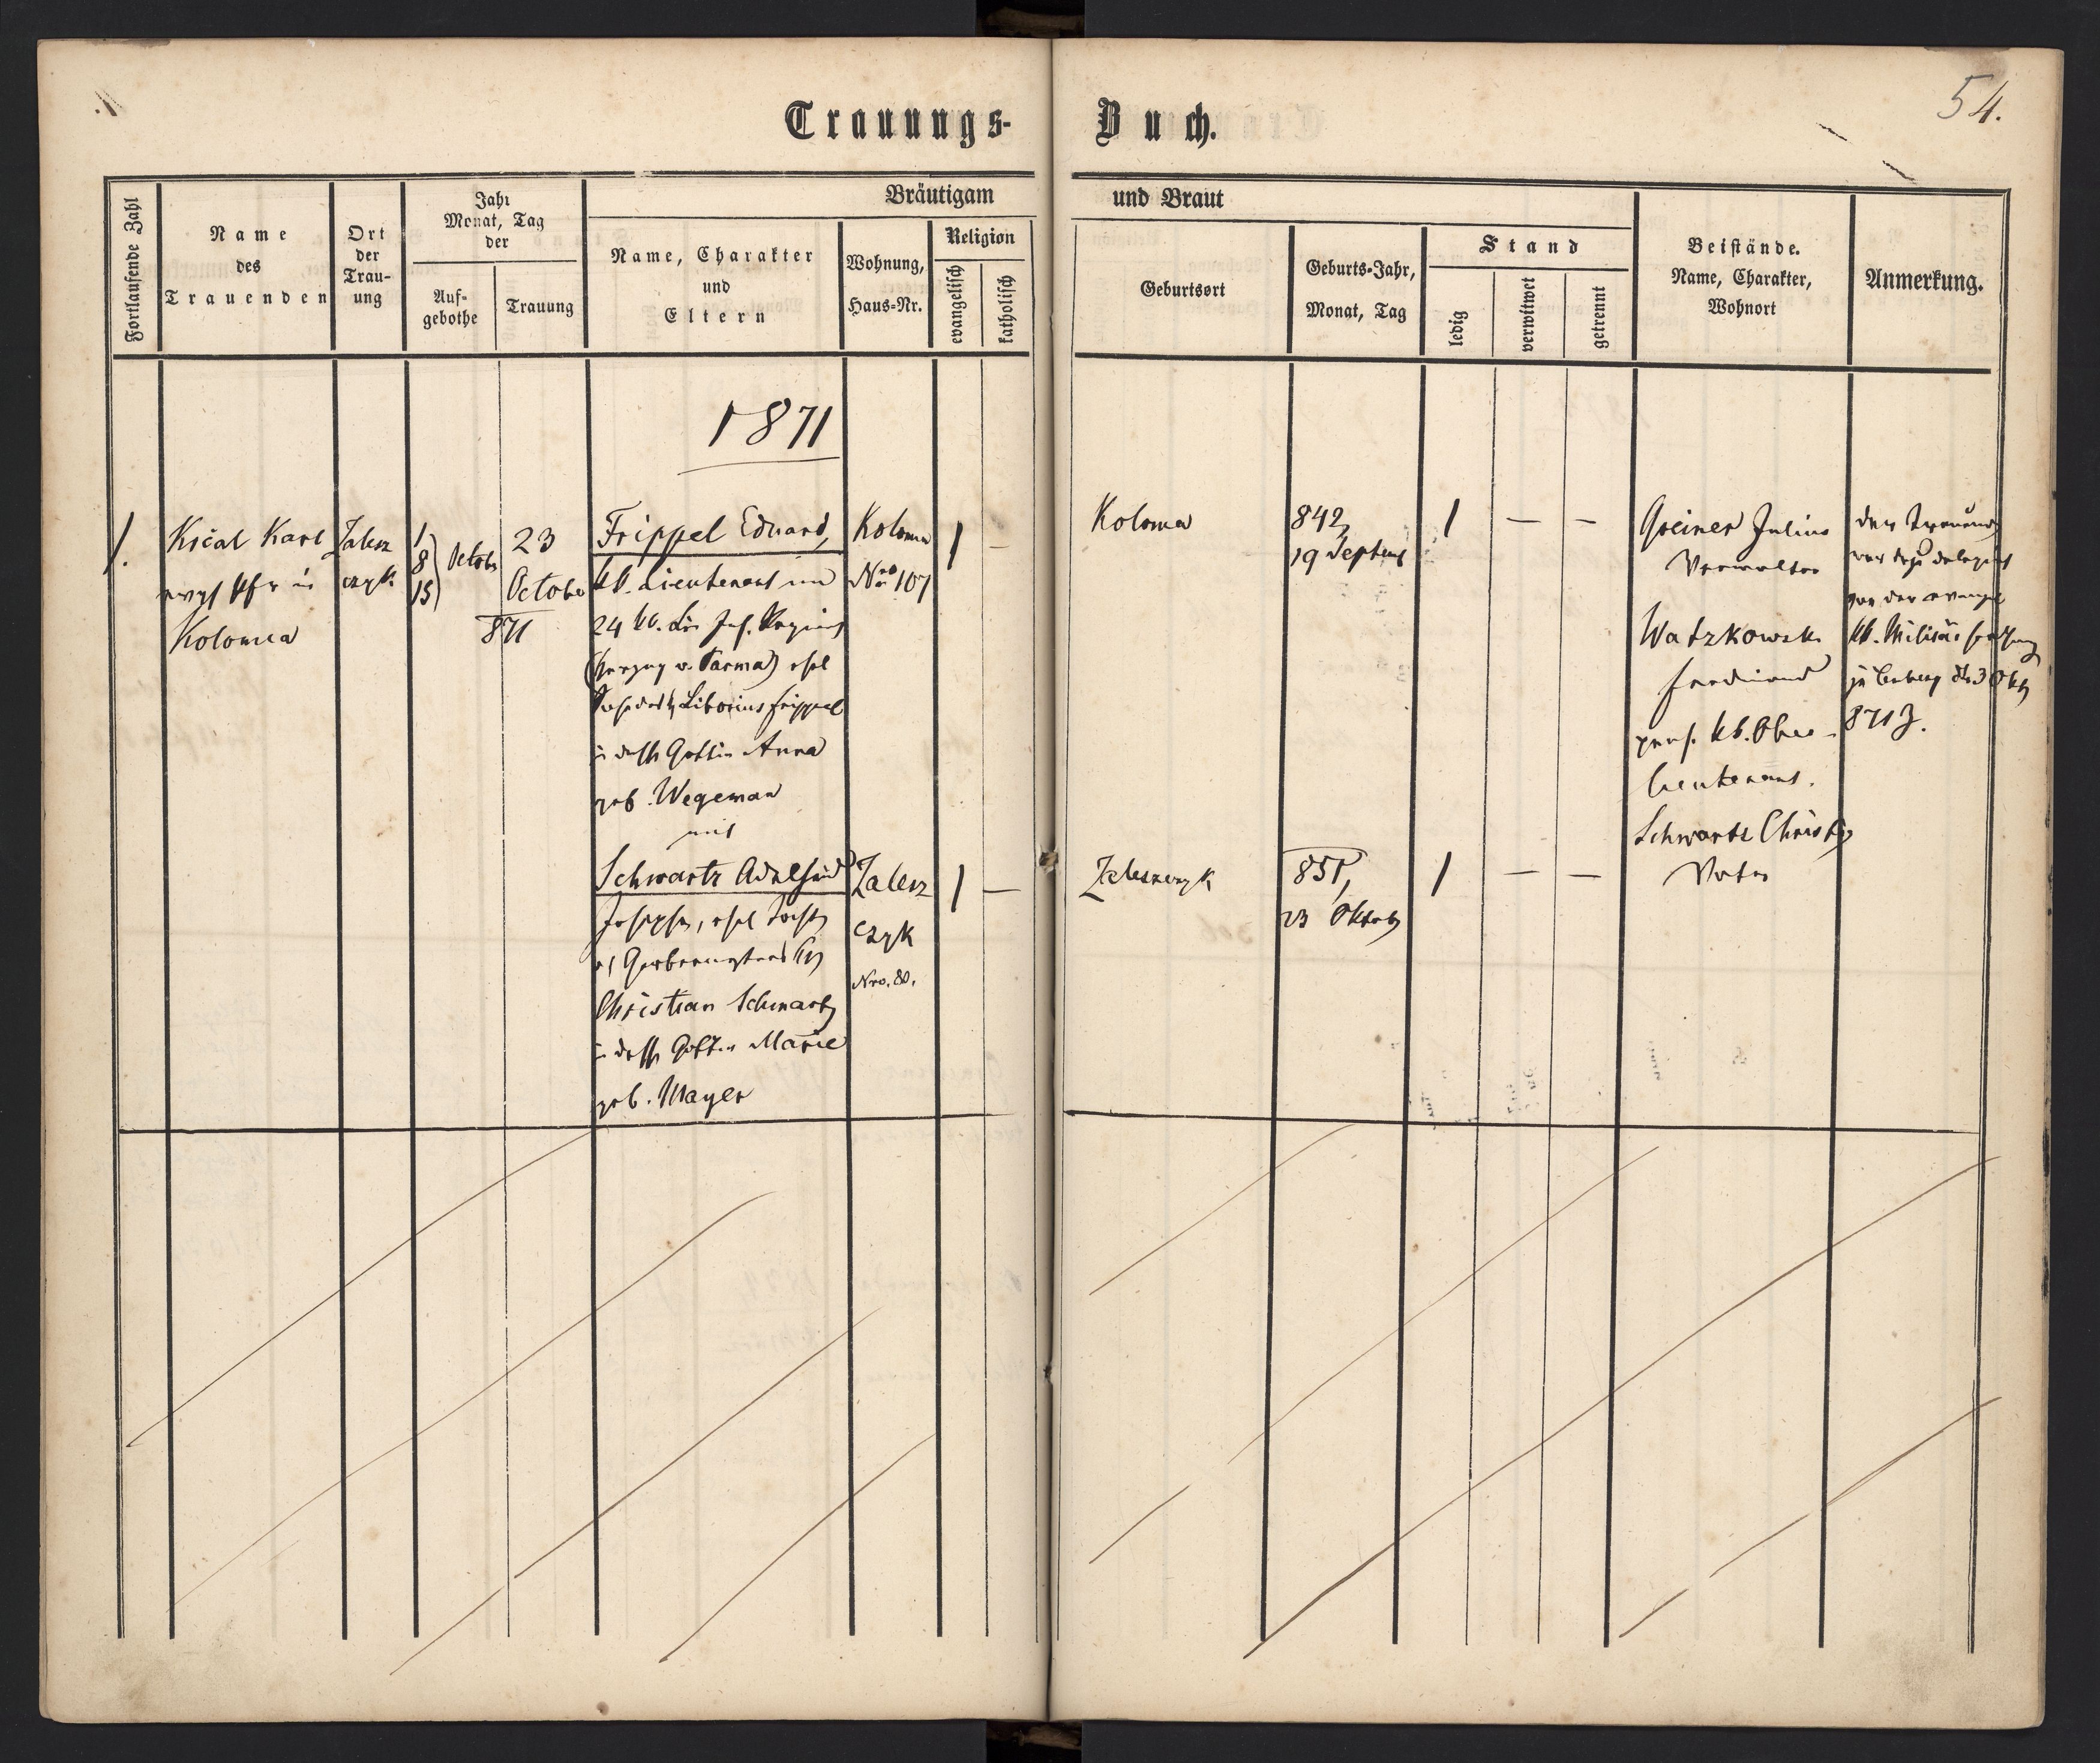 54.
Trauungs-Buch.
Fortlaufende Zahl
Name
des
Trauenden
Ort
der
Trau-
ung
Jahr
Monat, Tag
der
Auf-
gebothe
Trauung
Bräutigam und Braut
Name, Charakter
und
Eltern
Wohnung,
Haus-Nr.
Religion
evangelisch
katholisch
Geburtsort
Geburts-Jahr,
Monat, Tag
Stand
ledig
verwitwet
getrennt
Beistände.
Name, Charakter,
Wohnort
Anmerkung.
1871
1.
Kičal Karl
Kolomea
Zalesz
czyk
1
8
15
October
23
October
871
Frippel Eduard,
kk. Lieutenant im
24 kk. Lin Inf. Regim
(Herzog v. Parma) ehel
Liborius Frippel
Gattin Anna
geb. Wegeman
mit
Kolomea
Nro 107
1 –
Kolomea
842,
19 Septemb
1 – –
Greiner Julius
Verwalter
Watzkowski
Ferdinand
pens. kk. Ober-
lieutenant.
Schwartz Christ
Vater
der Trauende
war dazu
von der evangel
kk. Militär
871 Z.
Schwartz
Christian Schwartz
Gattin Marie
geb. Mayer
Zalesz
czyk
Nro. 80.
1 –
Zaleszczyk
851,
23 Oktob
1 – –